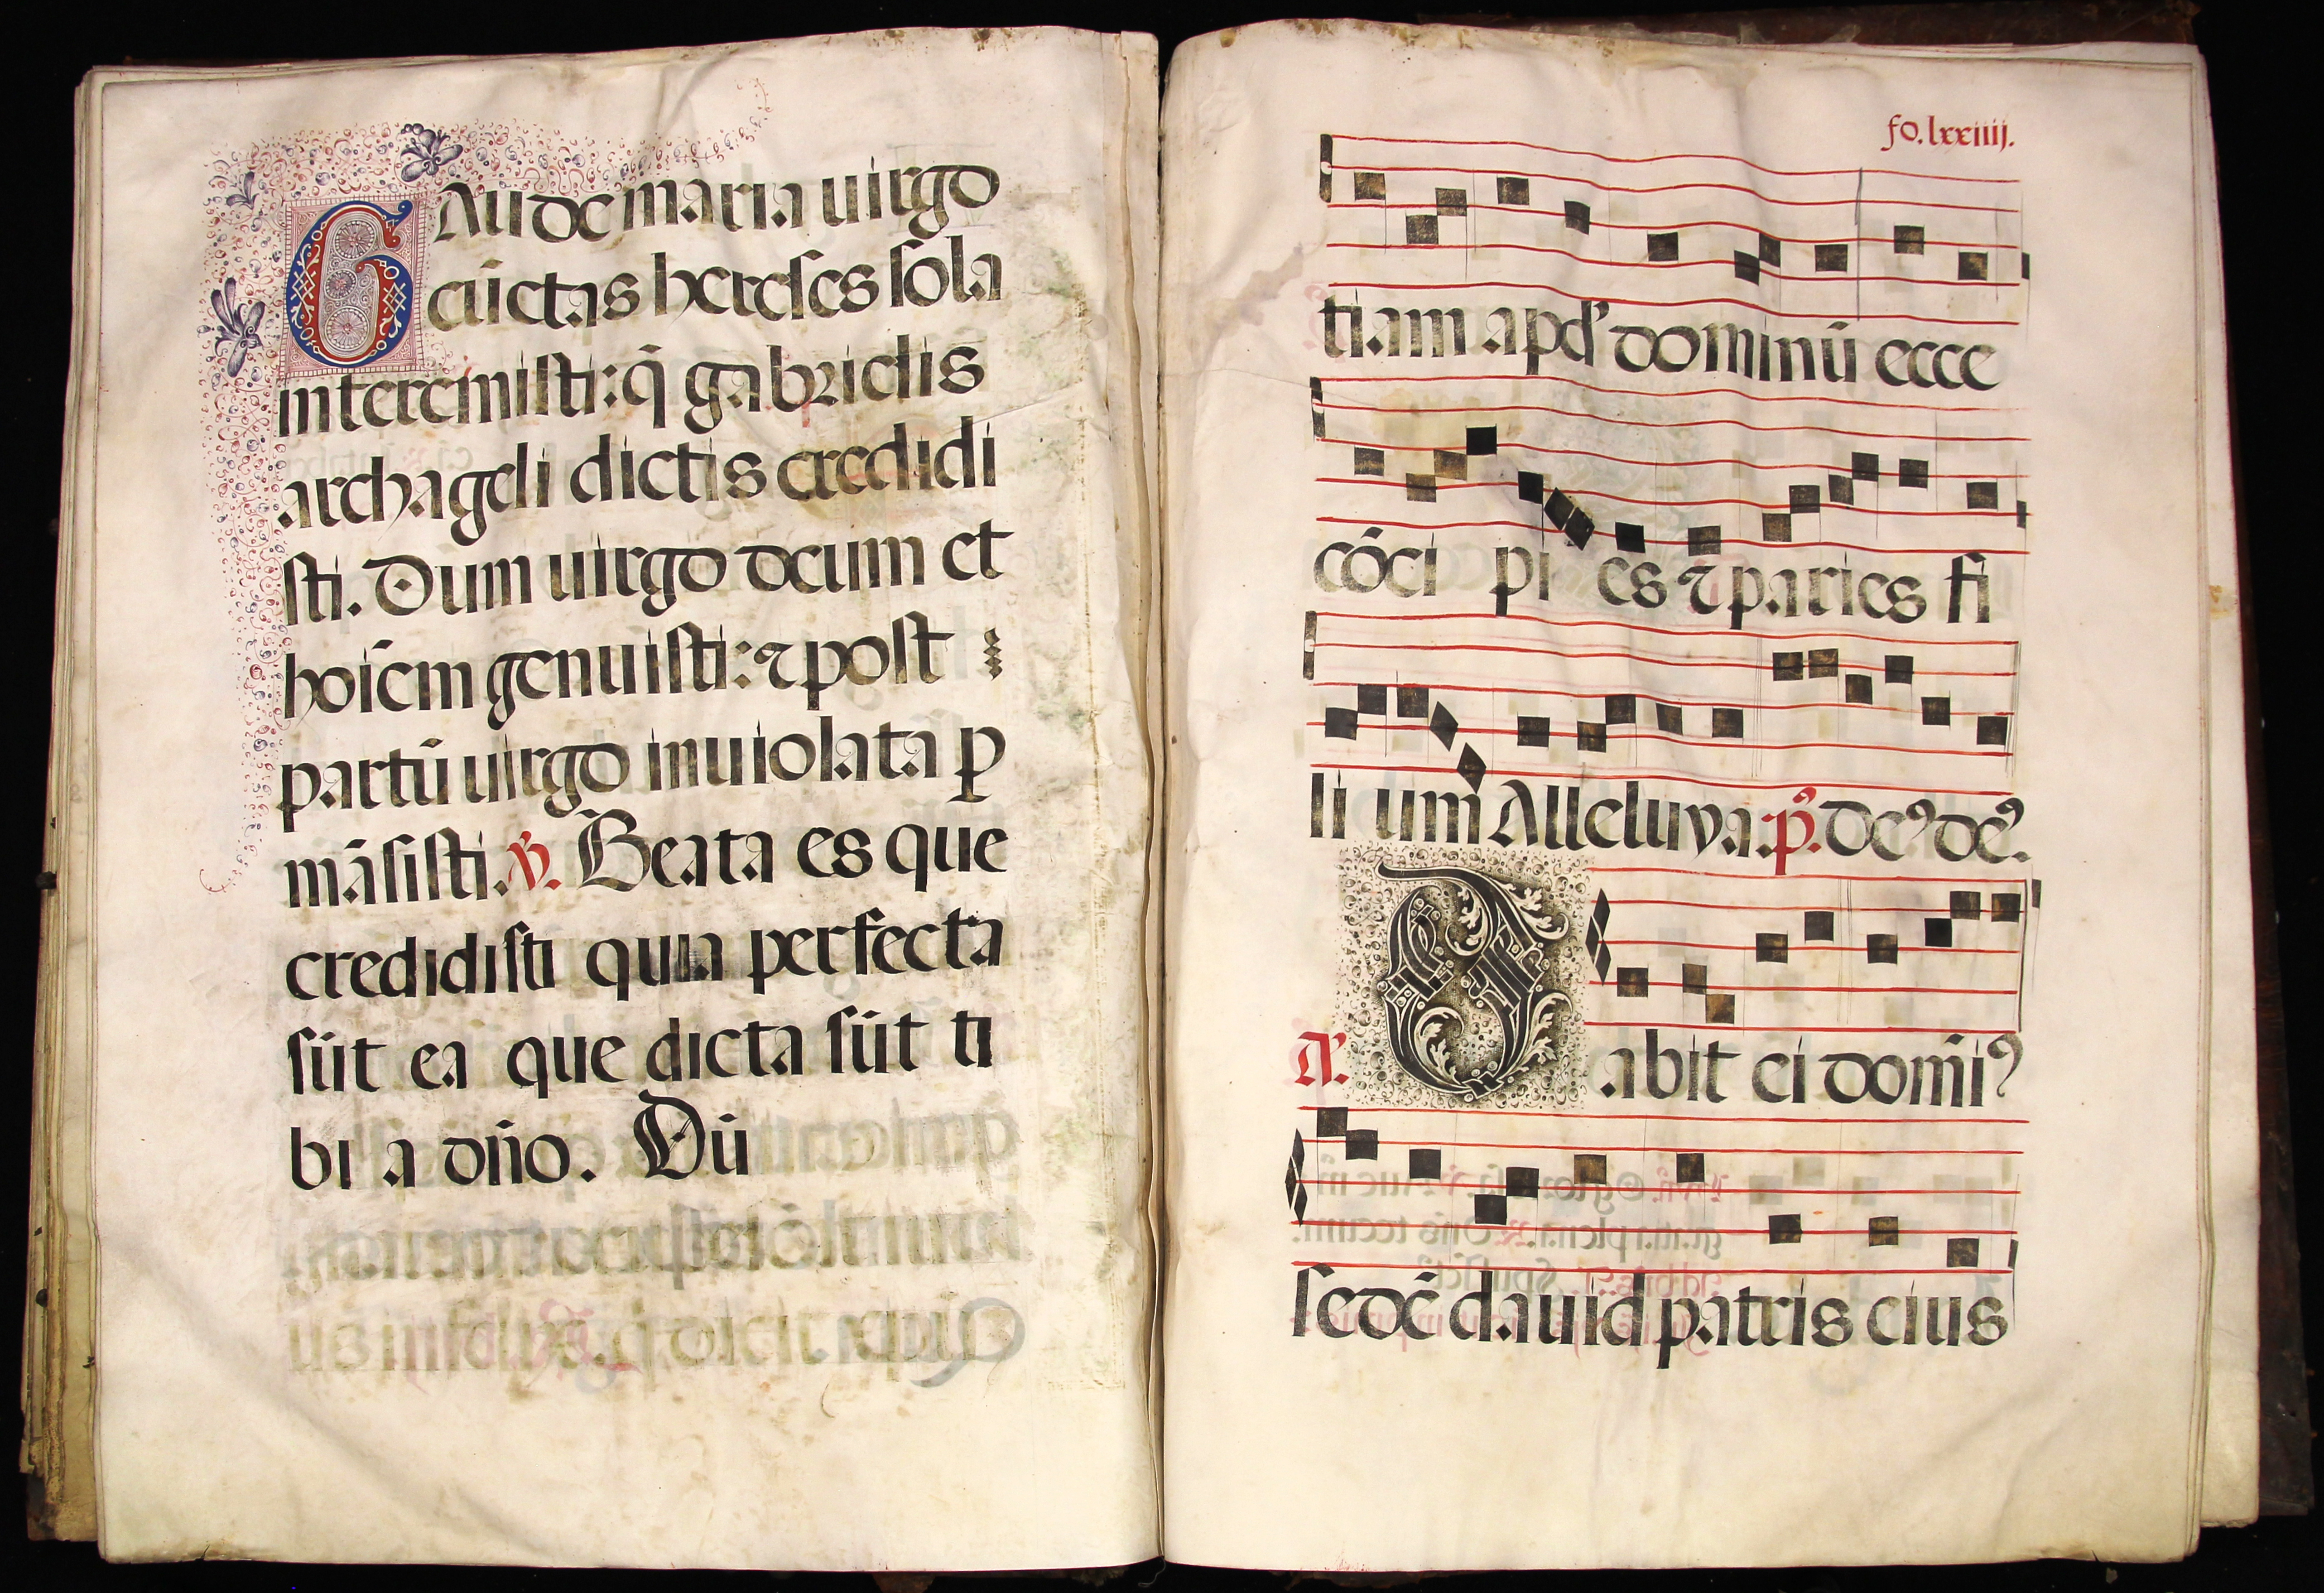 GAude maria uirgo
cūctas hereses sola
interemisti: q̄ gabrielis
archāgeli dictis credidi
sti. Dum uirgo deum et
hoīem genuisti: ⁊ post
partū uirgo inuiolata ꝑ
māsisti. ℣. Beata es que
credidisti quia perfecta
sūt ea que dicta sūt ti
bi a dño. Dū
fo. lxxiiij.
tiam apd' dominū ecce
cōci pi es ⁊ paries fi
li um Alleluya. p̄s. de⁹ de⁹.
A. Dabit ei domī⁹
sedē dauid patris eius